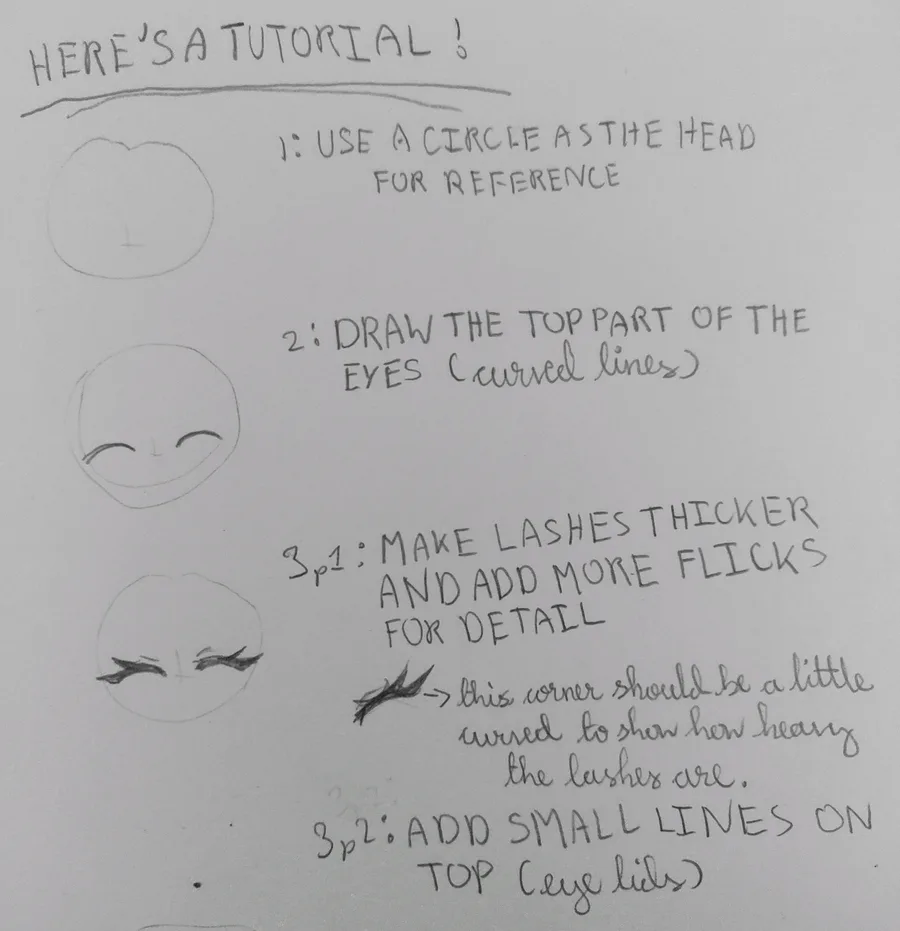 HERE'S A TUTORIAL!
1: USE A CIRCLE AS THE HEAD
FOR REFERENCE
2: DRAW THE TOP PART OF THE
EYES (curved lines)
3p1: MAKE LASHES THICKER
AND ADD MORE FLICKS
FOR DETAIL
→ this corner should be a little
curved to show how heavy
the lashes are.
3p2: ADD SMALL LINES ON
TOP (eye lids)